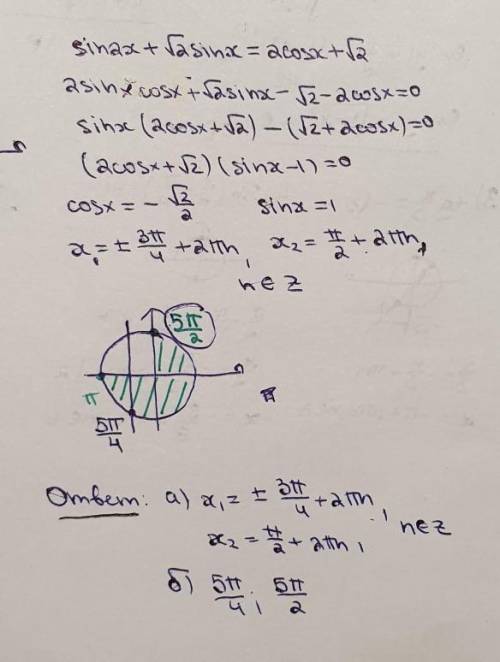 sin2x + √2sinx = 2cosx + √2
2sinx cosx + √2sinx - √2 - 2cosx = 0
sinx (2cosx + √2) - (√2 + 2cosx) = 0
(2cosx + √2) (sinx - 1) = 0
cosx = - √2/2 sinx = 1
x₁ = ± 3π/4 + 2πn, x₂ = π/2 + 2πn,
n ∈ Z
5π/2
π
5π/4
Ответ: а) x₁ = ± 3π/4 + 2πn,
x₂ = π/2 + 2πn, n ∈ Z
б) 5π/4; 5π/2